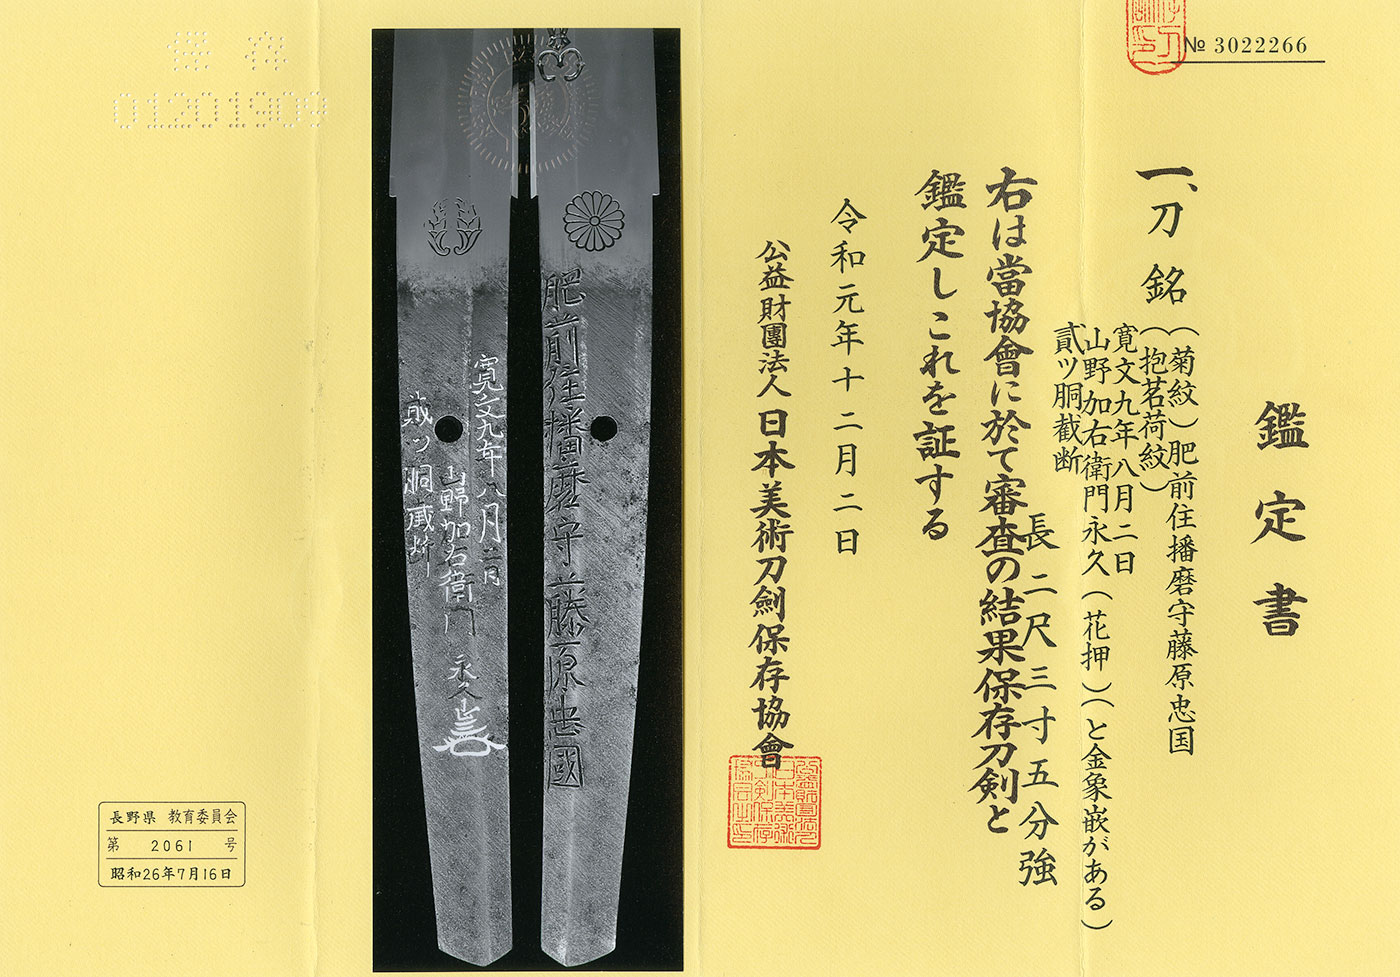 № 3022266
鑑定書
一、刀 銘 (菊紋)肥前住播磨守藤原忠国
(抱茗荷紋)
寛文九年八月二日
山野加右衛門永久(花押)(と金象嵌がある)
貳ツ胴截断
長 二尺三寸五分強
右は當協會に於て審査の結果保存刀剣と
鑑定しこれを証する
令和元年十二月二日
公益財團法人 日本美術刀劍保存協會
肥前住播磨守藤原忠國
寛文九年八月二日
山野加右衛門永久
貳ツ胴截断
保存
01201909
長野県 教育委員会
第 2061 号
昭和26年7月16日